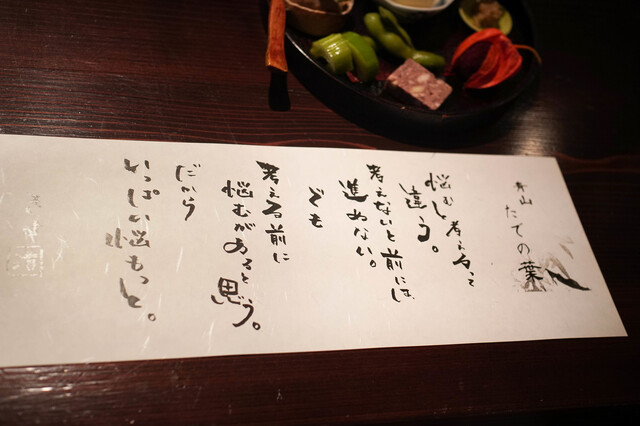 青山
たでの葉
悩むと考えるって
違う。
考えないと前には
進めない。
でも
考える前に
悩むがあると思う。
だから
いっぱい悩もっと。